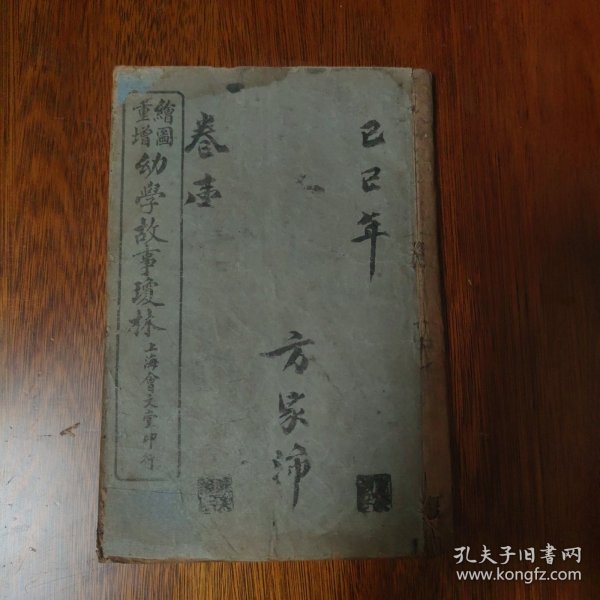 己巳年
方家沛
卷壹
繪圖
重增
幼學故事瓊林
上海會文堂印行
孔夫子旧书网
www.kongfz.com